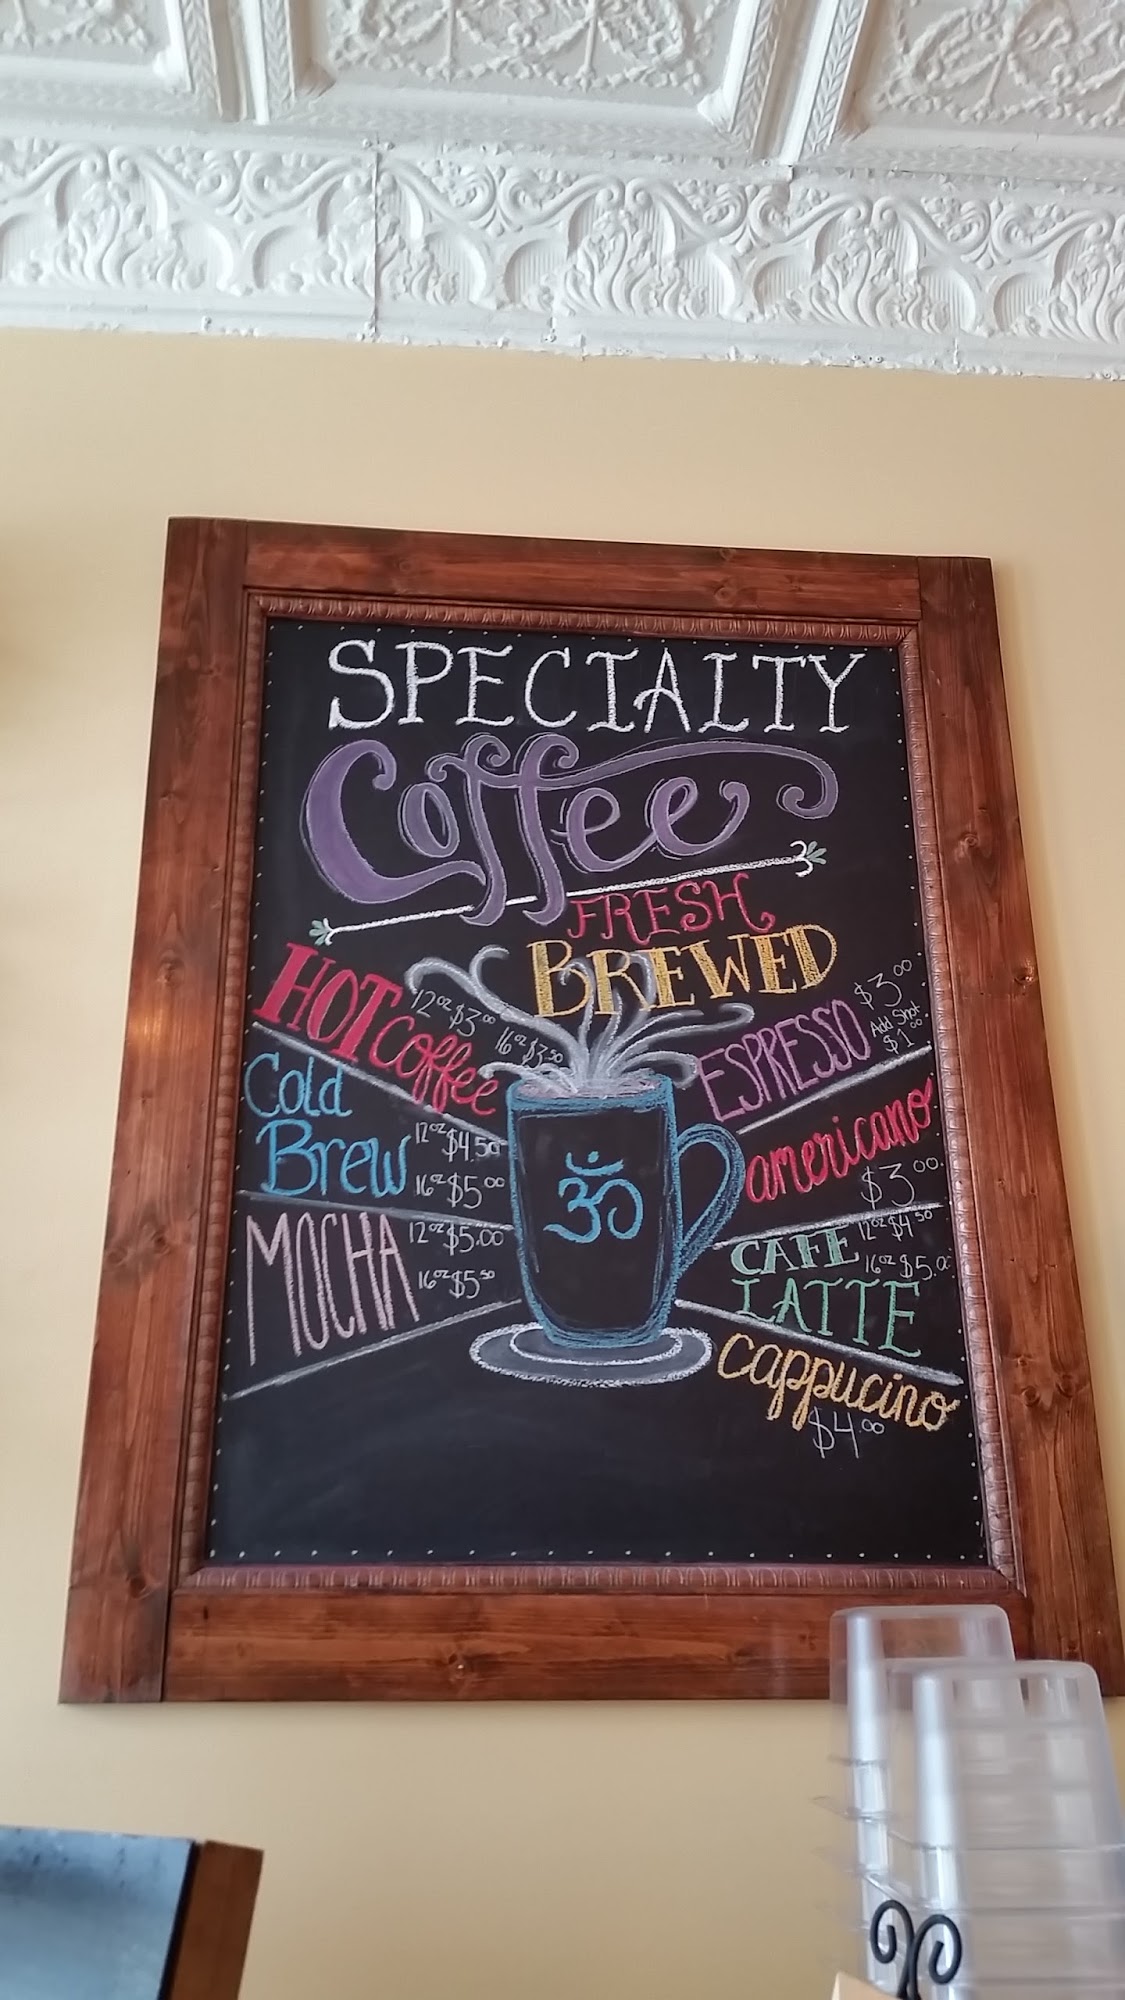 SPECIALTY
Coffee
FRESH
BREWED
HOT coffee 12oz $3.00 16oz $3.50
Cold
Brew
12oz $4.50
16oz $5.00
MOCHA
12oz $5.00
16oz $5.50
ESPRESSO $3.00
Add Shot
$1.00
americano
$3.00
CAFE
LATTE
12oz $4.50
16oz $5.00
cappucino
$4.00
ॐ